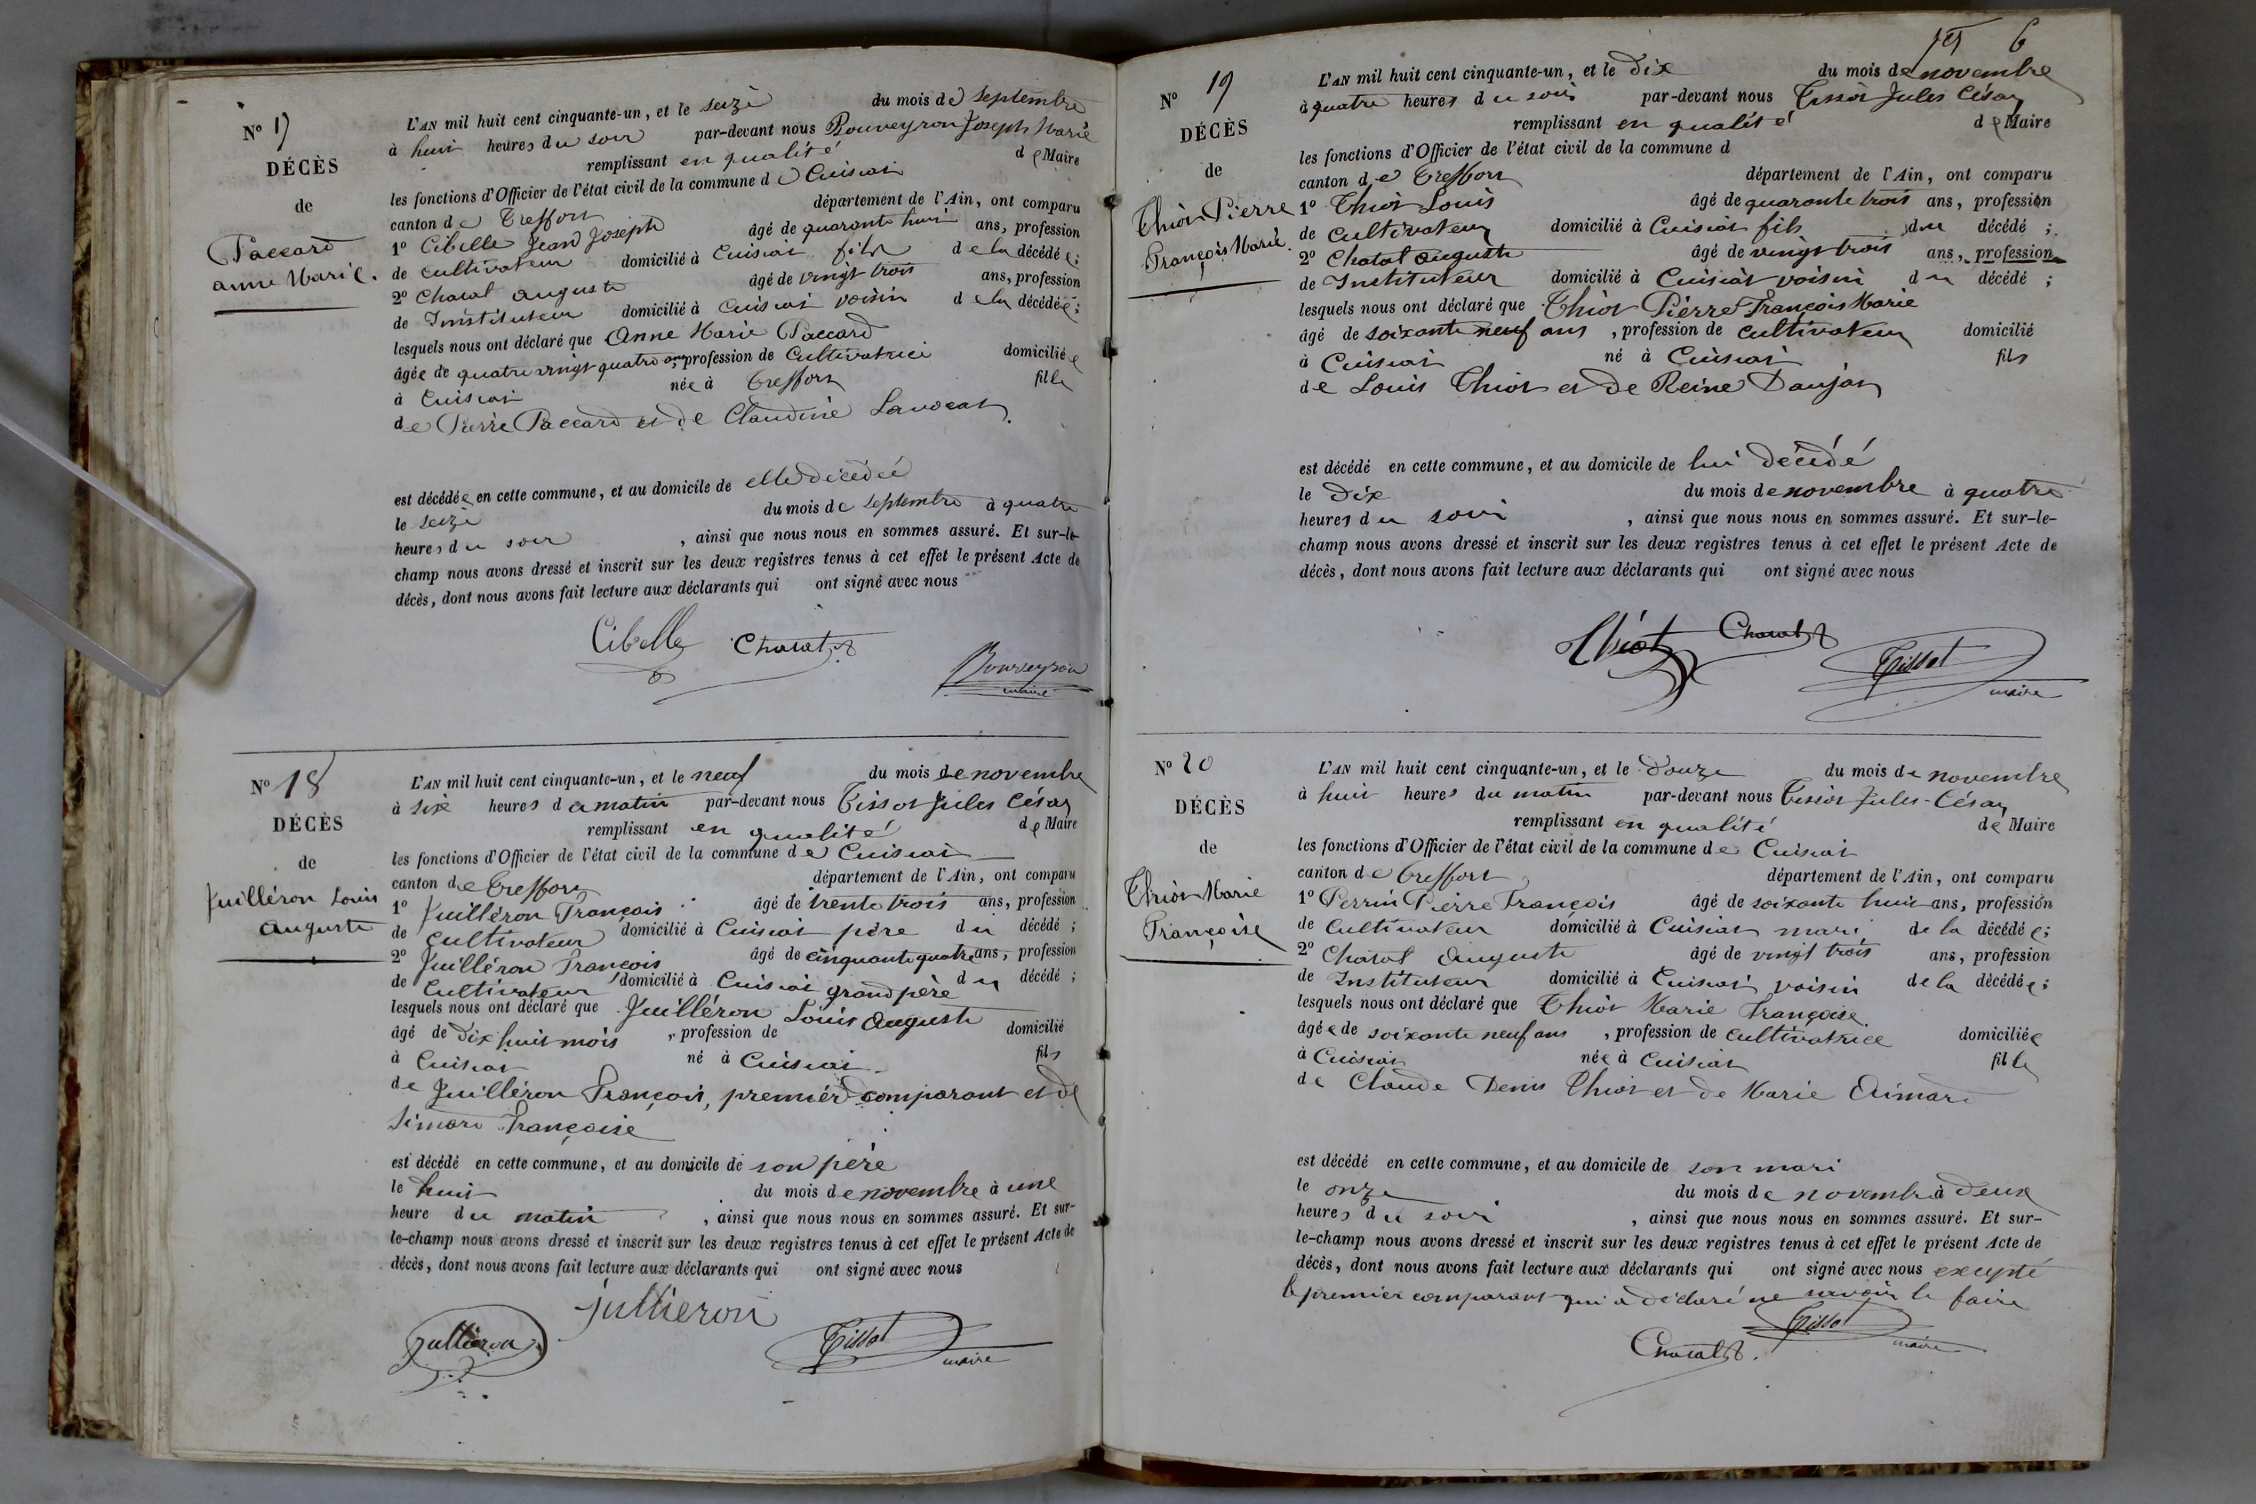 Nº 17
DÉCÈS
de
Paccard
Anne Marie.
L'AN mil huit cent cinquante-un, et le seize du mois de Septembre
à huit heures du soir par-devant nous Bouveyron Joseph Marie
remplissant en qualité de Maire
les fonctions d'Officier de l'état civil de la commune de Cuisiat
canton de Treffort département de l'Ain, ont comparu
1º Cibelle Jean Joseph âgé de quarante huit ans, profession
de cultivateur domicilié à Cuisiat fils de la décédée;
2º Chatal Auguste âgé de vingt trois ans, profession
de Instituteur domicilié à Cuisiat voisin de la décédée;
lesquels nous ont déclaré que Anne Marie Paccard
âgée de quatre vingt quatre ans, profession de Cultivatrice domiciliée
à Cuisiat née à Treffort fille
de Pierre Paccard et de Claudine
est décédée en cette commune, et au domicile de elle décédée
le seize du mois de Septembre à quatre
heures du soir, ainsi que nous nous en sommes assuré. Et sur-le-
champ nous avons dressé et inscrit sur les deux registres tenus à cet effet le présent Acte de
décès, dont nous avons fait lecture aux déclarants qui ont signé avec nous
Cibelle Chatal
Bouveyron
maire
Nº 18
DÉCÈS
de
Juilléron Louis
Auguste
L'AN mil huit cent cinquante-un, et le neuf du mois de novembre
à six heures du matin par-devant nous Tissot Jules César
remplissant en qualité de Maire
les fonctions d'Officier de l'état civil de la commune de Cuisiat
canton de Treffort département de l'Ain, ont comparu
1º Juilléron François âgé de trente trois ans, profession
de cultivateur domicilié à Cuisiat père du décédé;
2º Juilléron François âgé de cinquante quatre ans, profession
de Cultivateur domicilié à Cuisiat grand père du décédé;
lesquels nous ont déclaré que Juilléron Louis Auguste
âgé de dix huit mois, profession de domicilié
à Cuisiat né à Cuisiat fils
de Juilléron François, premier comparant et de
Simard Françoise
est décédé en cette commune, et au domicile de son père
le huit du mois de novembre à une
heure du matin, ainsi que nous nous en sommes assuré. Et sur-
le-champ nous avons dressé et inscrit sur les deux registres tenus à cet effet le présent Acte de
décès, dont nous avons fait lecture aux déclarants qui ont signé avec nous
jullieron
jullieron
Tissot
maire
6
Nº 19
DÉCÈS
de
Thiot Pierre
François Marie.
L'AN mil huit cent cinquante-un, et le dix du mois de novembre
à quatre heures du soir par-devant nous Tissot Jules César
remplissant en qualité de Maire
les fonctions d'Officier de l'état civil de la commune d
canton de Treffort département de l'Ain, ont comparu
1º Thiot Louis âgé de quarante trois ans, profession
de Cultivateur domicilié à Cuisiat fils du décédé;
2º Chatal Auguste âgé de vingt trois ans, profession
de Instituteur domicilié à Cuisiat voisin du décédé;
lesquels nous ont déclaré que Thiot Pierre François Marie
âgé de soixante neuf ans, profession de cultivateur domicilié
à Cuisiat né à Cuisiat fils
de Louis Thiot et de Reine Daujat
est décédé en cette commune, et au domicile de lui décédé
le dix du mois de novembre à quatre
heures du soir, ainsi que nous nous en sommes assuré. Et sur-le-
champ nous avons dressé et inscrit sur les deux registres tenus à cet effet le présent Acte de
décès, dont nous avons fait lecture aux déclarants qui ont signé avec nous
Thiot Chatal
Tissot
maire
Nº 20
DÉCÈS
de
Thiot Marie
Françoise
L'AN mil huit cent cinquante-un, et le douze du mois de novembre
à huit heures du matin par-devant nous Tissot Jules-César
remplissant en qualité de Maire
les fonctions d'Officier de l'état civil de la commune de Cuisiat
canton de Treffort département de l'Ain, ont comparu
1º Perrin Pierre François âgé de soixante huit ans, profession
de Cultivateur domicilié à Cuisiat mari de la décédée;
2º Chatal Auguste âgé de vingt trois ans, profession
de Instituteur domicilié à Cuisiat voisin de la décédée;
lesquels nous ont déclaré que Thiot Marie Françoise
âgée de soixante neuf ans, profession de cultivatrice domiciliée
à Cuisiat née à Cuisiat fille
de Claude Denis Thiot et de Marie Aimard
est décédé en cette commune, et au domicile de son mari
le onze du mois de novembre à deux
heures du soir, ainsi que nous nous en sommes assuré. Et sur-
le-champ nous avons dressé et inscrit sur les deux registres tenus à cet effet le présent Acte de
décès, dont nous avons fait lecture aux déclarants qui ont signé avec nous excepté
le premier comparant qui a déclaré ne savoir le faire
Tissot
maire
Chatal